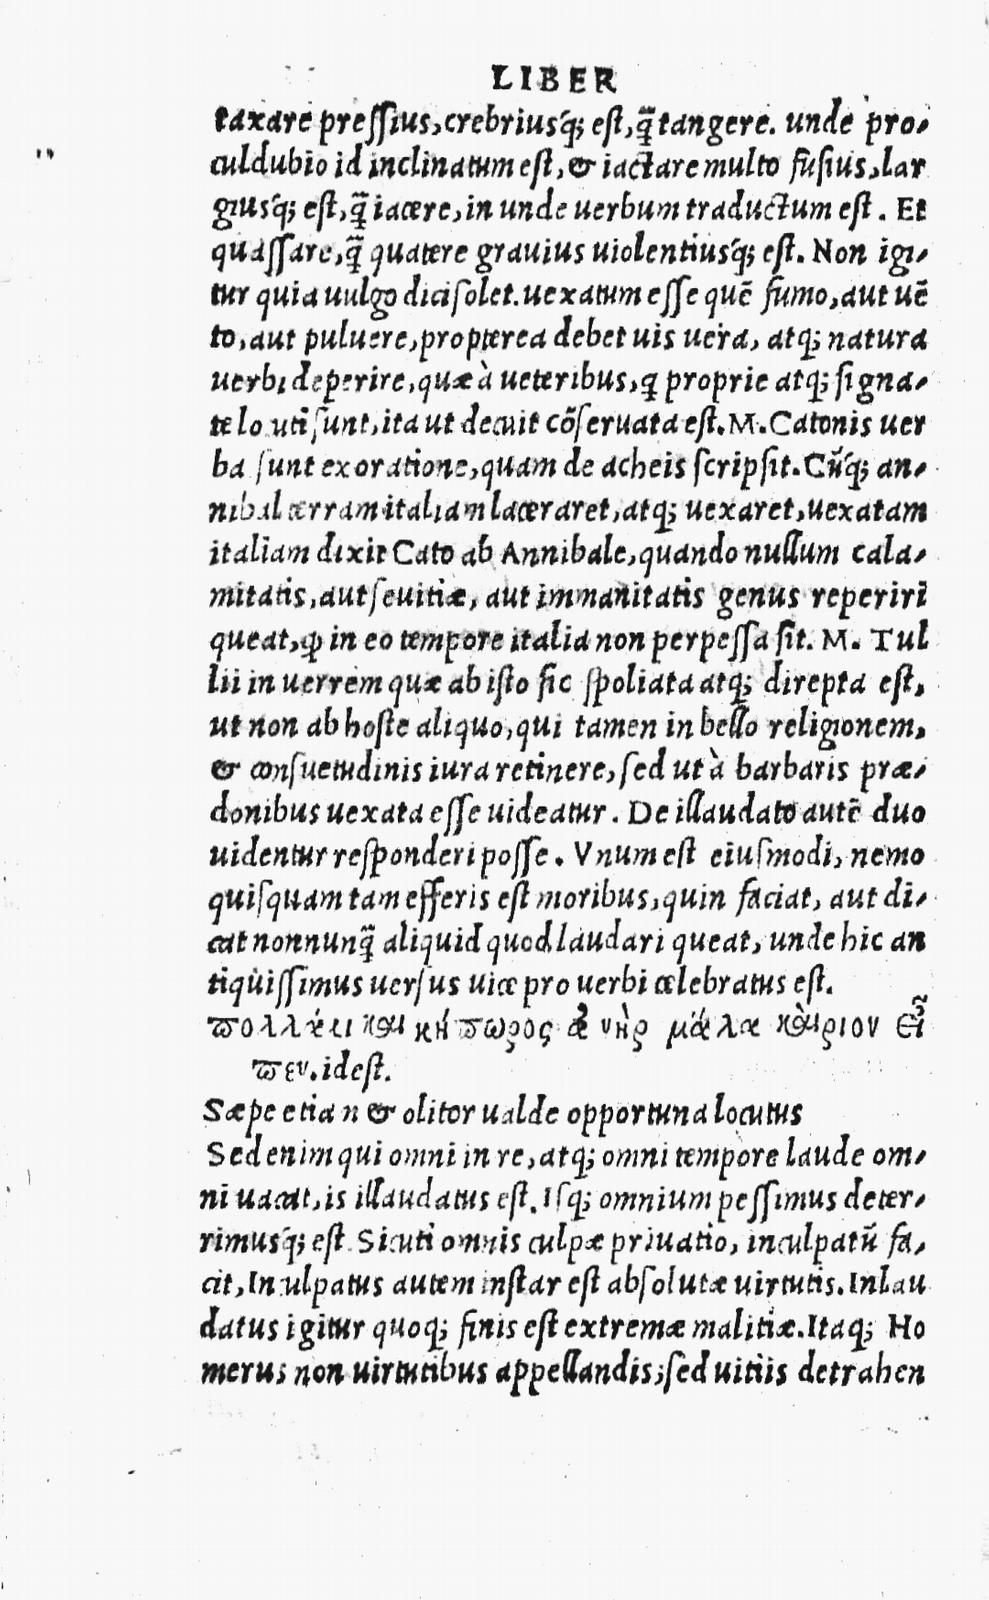 LIBER
taxare pressius, crebriusq́; est, q̃ tangere. unde pro-
culdubio id inclinatum est, & iactare multo fusius, lar
giusq́; est, q̃ iacere, in unde uerbum traductum est. Et
quassare, q̃ quatere grauius uiolentiusq́; est. Non igi-
tur quia uulgo dici solet. uexatum esse quẽ fumo, aut uẽ
to, aut puluere, propterea debet uis uera, atq; natura
uerbi deperire, quæ à ueteribus, q proprie atq; signa-
te lo uti sunt, ita ut decuit cõseruata est. M. Catonis uer
ba sunt ex oratione, quam de acheis scripsit. Cũq́; an-
nibal terram italiam laceraret, atq; uexaret, uexatam
italiam dixit Cato ab Annibale, quando nullum cala-
mitatis, aut seuitiæ, aut immanitatis genus reperiri
queat, ꝙ in eo tempore italia non perpessa sit. M. Tul
lii in uerrem quæ ab isto sic spoliata atq; direpta est,
ut non ab hoste aliquo, qui tamen in bello religionem,
& consuetudinis iura retinere, sed ut à barbaris præ-
donibus uexata esse uideatur. De illaudato autẽ duo
uidentur responderi posse. Vnum est eiusmodi, nemo
quisquam tam efferis est moribus, quin faciat, aut di-
cat nonnunq̃ aliquid quod laudari queat, unde hic an
tiquissimus uersus uice prouerbi celebratus est.
πολλάκι καὶ κήπωρος ἀνὴρ μάλα καὶριον εἶ
πεν. idest.
Sæpe etian & olitor ualde opportuna locutus
Sed enim qui omni in re, atq; omni tempore laude om-
ni uacat, is illaudatus est. Isq; omnium pessimus deter-
rimusq́; est Sicuti omnis culpæ priuatio, inculpatũ fa-
cit, Inculpatus autem instar est absolutæ uirtutis. Inlau
datus igitur quoq; finis est extremæ malitiæ. Itaq; Ho
merus non uirtutibus appellandis, sed uitiis detrahen